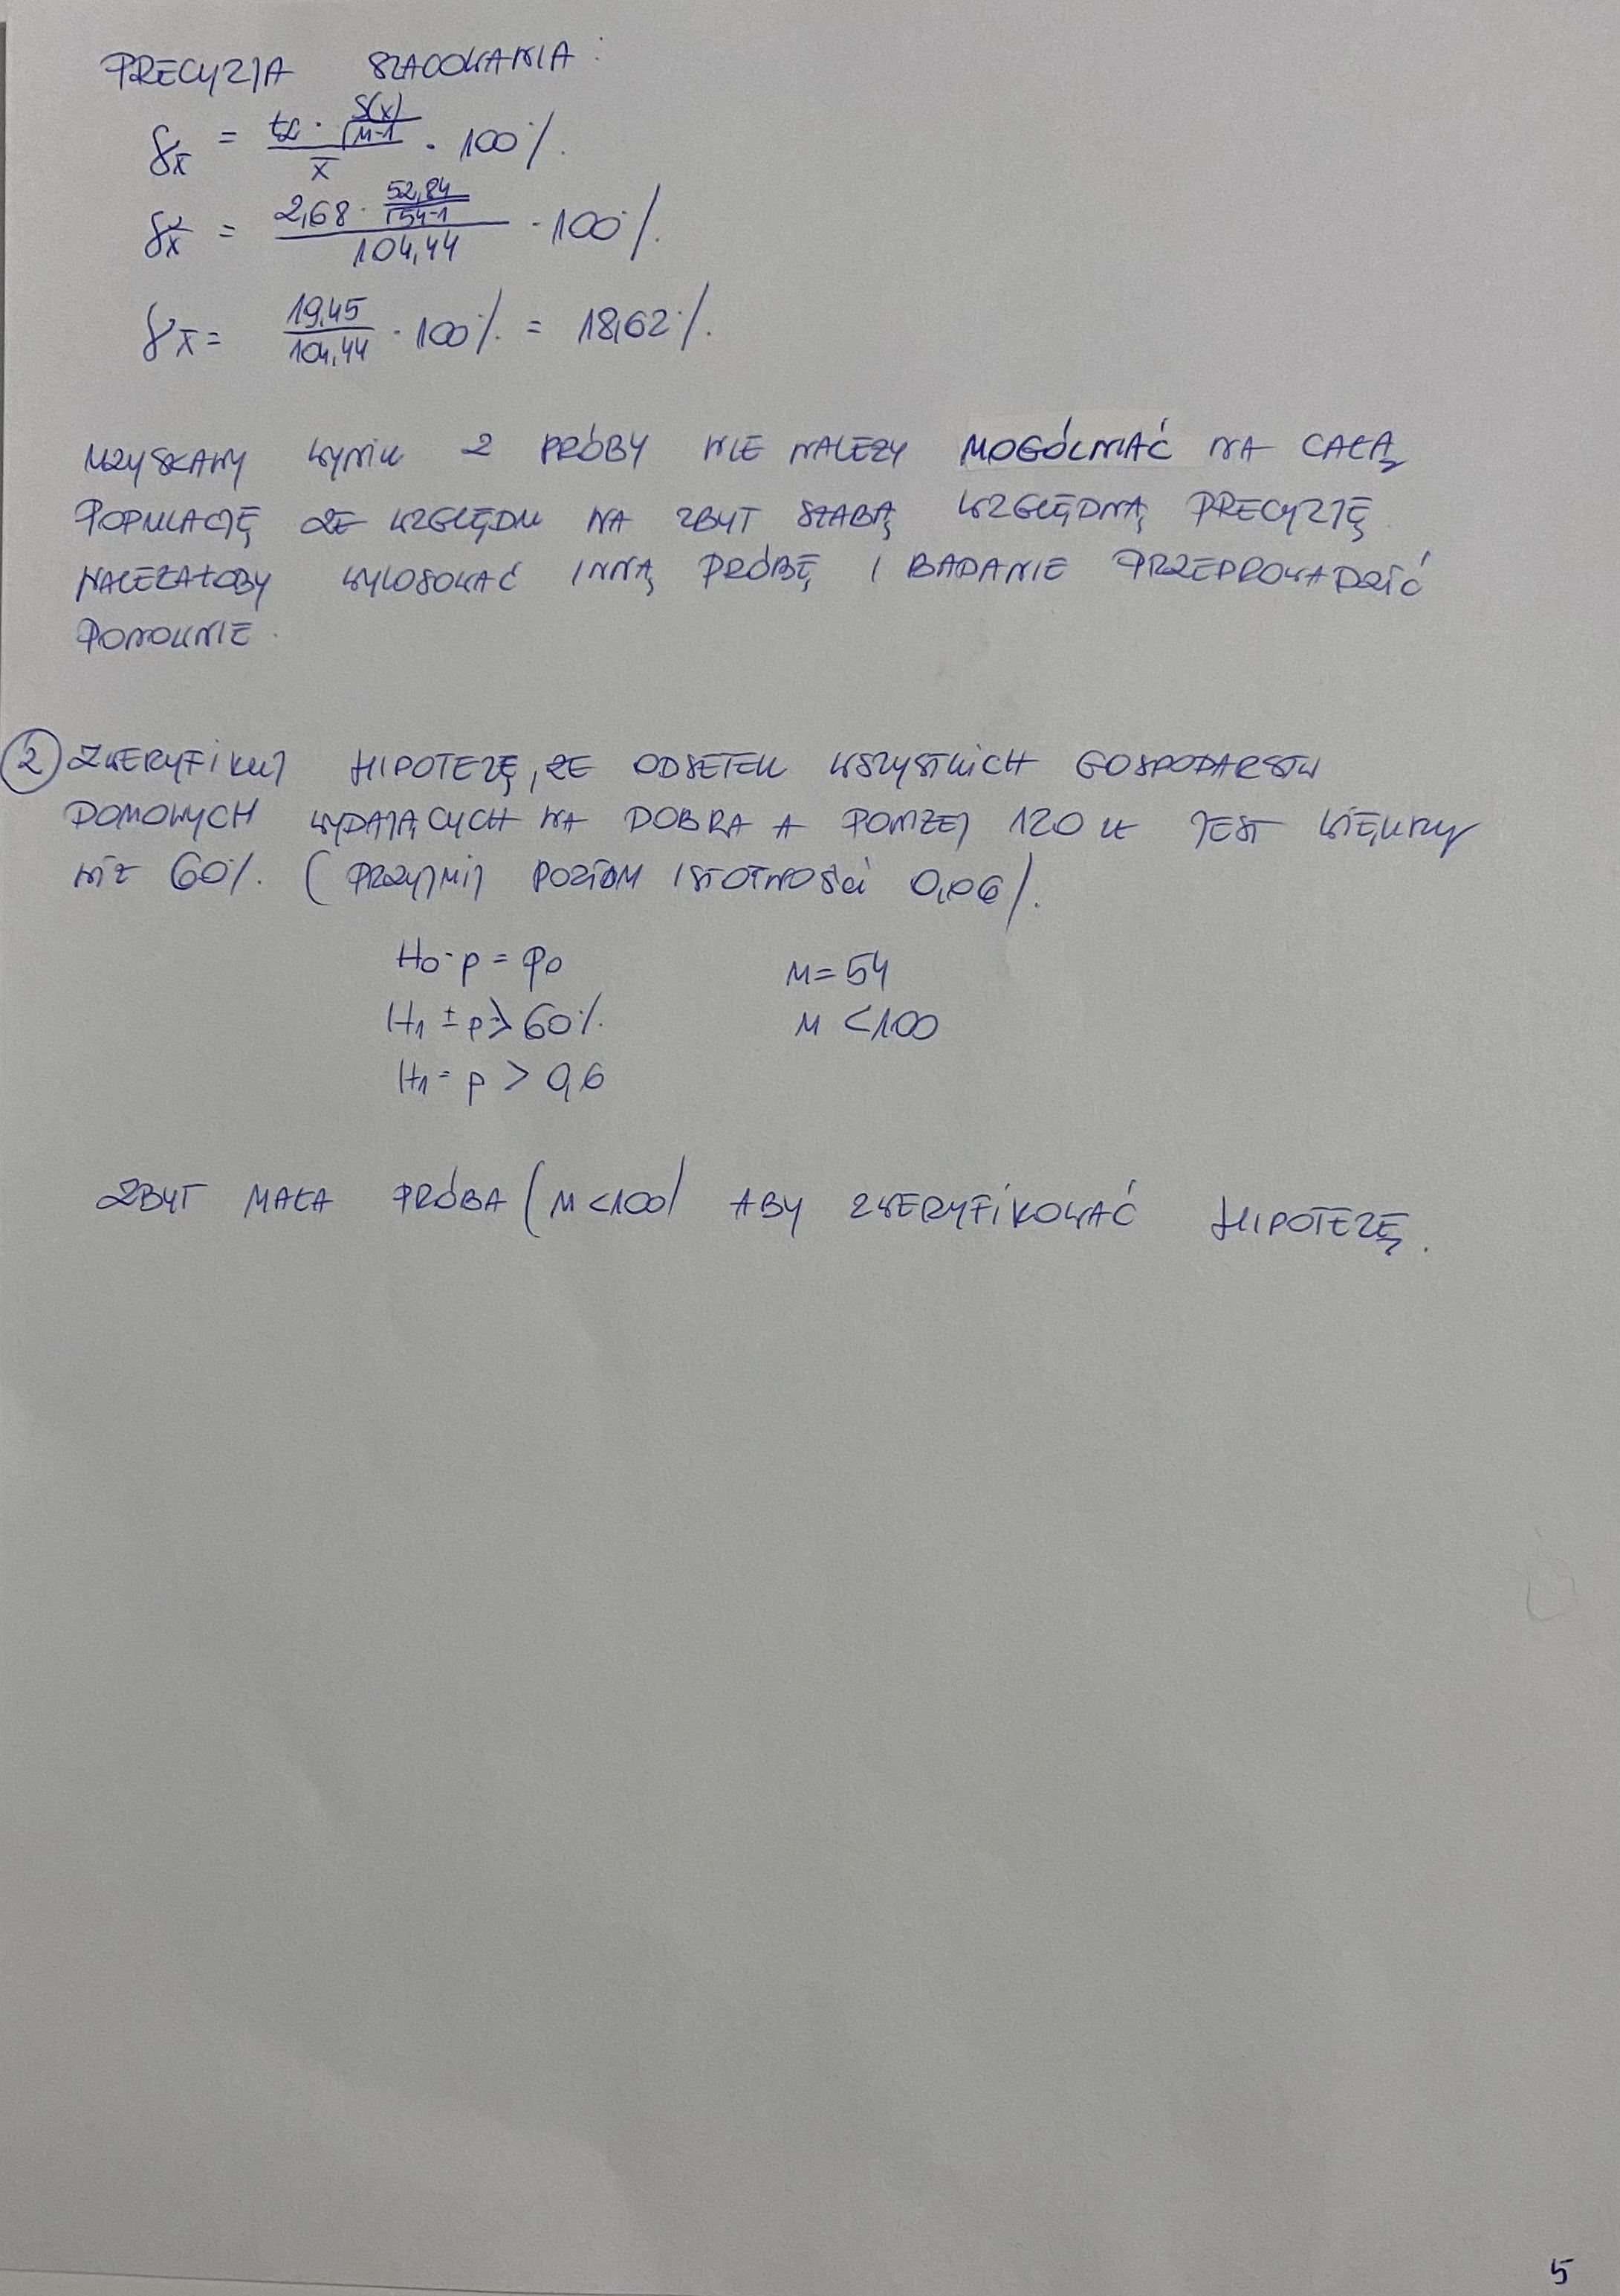 PRECYZJA SZACOWANIA:
δx̄ = (tα · S(x)/√n-1) / x̄ · 100%
δx̄ = (2,68 · 52,84/√54-1) / 104,44 · 100%
δx̄ = 19,45/104,44 · 100% = 18,62%
UZYSKANY WYNIK Z PRÓBY NIE NALEZY UOGÓLNIAĆ NA CAŁĄ
POPULACJĘ ZE WZGLĘDU NA ZBYT SŁABĄ WZGLĘDNĄ PRECYZJĘ
NALEZAŁOBY WYLOSOWAĆ INNĄ PRÓBĘ I BADANIE PRZEPROWADZIĆ
PONOWNIE.
2 ZWERYFIKUJ HIPOTEZĘ, ZE ODSETEK WSZYSTKICH GOSPODARSTW
DOMOWYCH WYDAJĄCYCH NA DOBRA A PONIZEJ 120 zł JEST WIĘKSZY
NIZ 60%. (PRZYJMIJ POZIOM ISTOTNOŚCI 0,06).
H0: p = p0 n = 54
H1: p > 60% n < 100
H1 = p > 0,6
ZBYT MAŁA PRÓBA (n < 100) ABY ZWERYFIKOWAĆ HIPOTEZĘ.
5